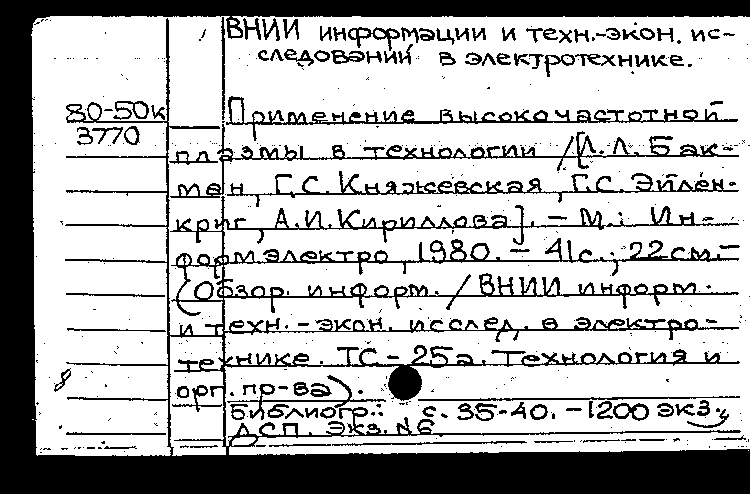 ВНИИ информации и техн.-экон. ис-
следований в электротехнике.
80-50к
3770
Применение высокочастотной
плазмы в технологии / [Л.Л. Бак-
ман, Г.С. Княжевская, Г.С. Эйлен-
криг, А.И. Кириллова]. - М.: Ин-
формэлектро, 1980. - 41с.; 22см. -
(Обзор. информ. / ВНИИ информ.
и техн. - экон. исслед. в электро-
технике. ТС-25а. Технология и
орг. пр-ва).
Библиогр.: с. 35-40. - 1200 экз.
ДСП. Экз. №6.